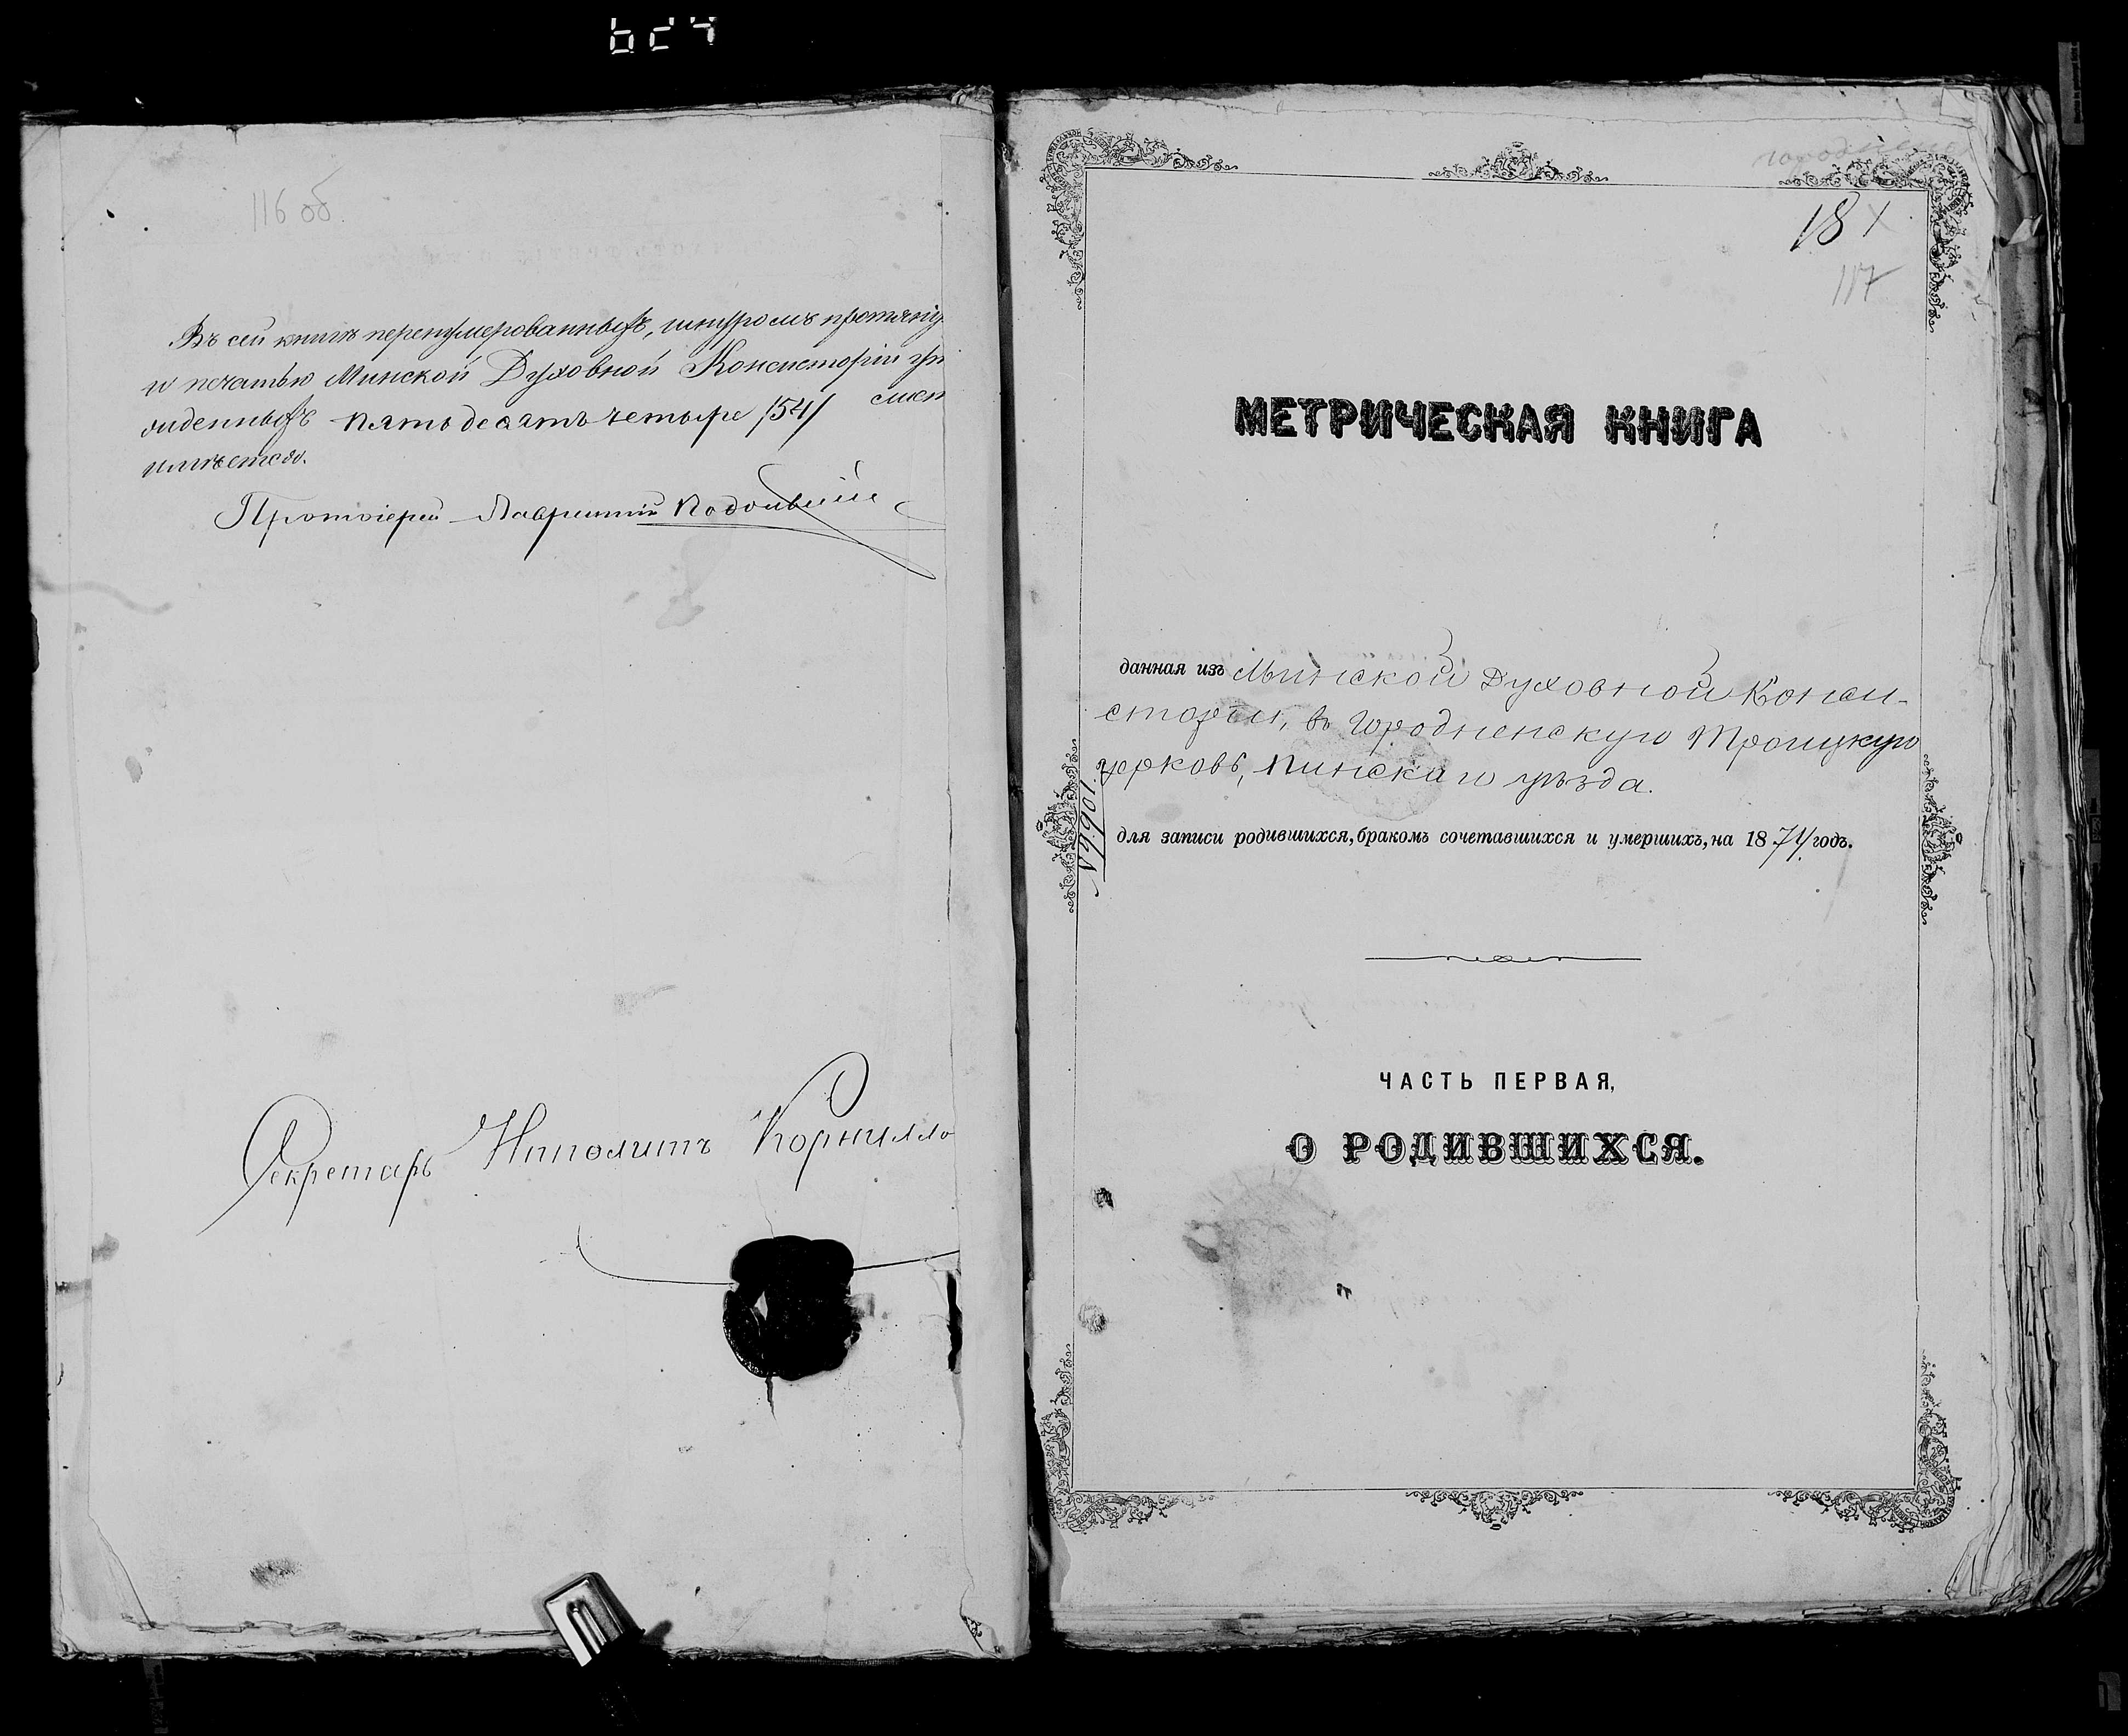 116 об.
Въ сей книгѣ перенумерованныхъ, шнуромъ протяну
и печатью Минской Духовной Консисторіи
пятьдесятъ четыре /54/
имѣется.
Протоіерей Лаврентій Подольскій
Секретарь Ипполитъ Корнилло
18
117
МЕТРИЧЕСКАЯ КНИГА
данная изъ Минской Духовной Конси-
сторіи, въ Городненскую Троицкую
церковь, Пинскаго уѣзда.
№ 9901.
для записи родившихся, бракомъ сочетавшихся и умершихъ, на 1874 годъ.
ЧАСТЬ ПЕРВАЯ,
О РОДИВШИХСЯ.